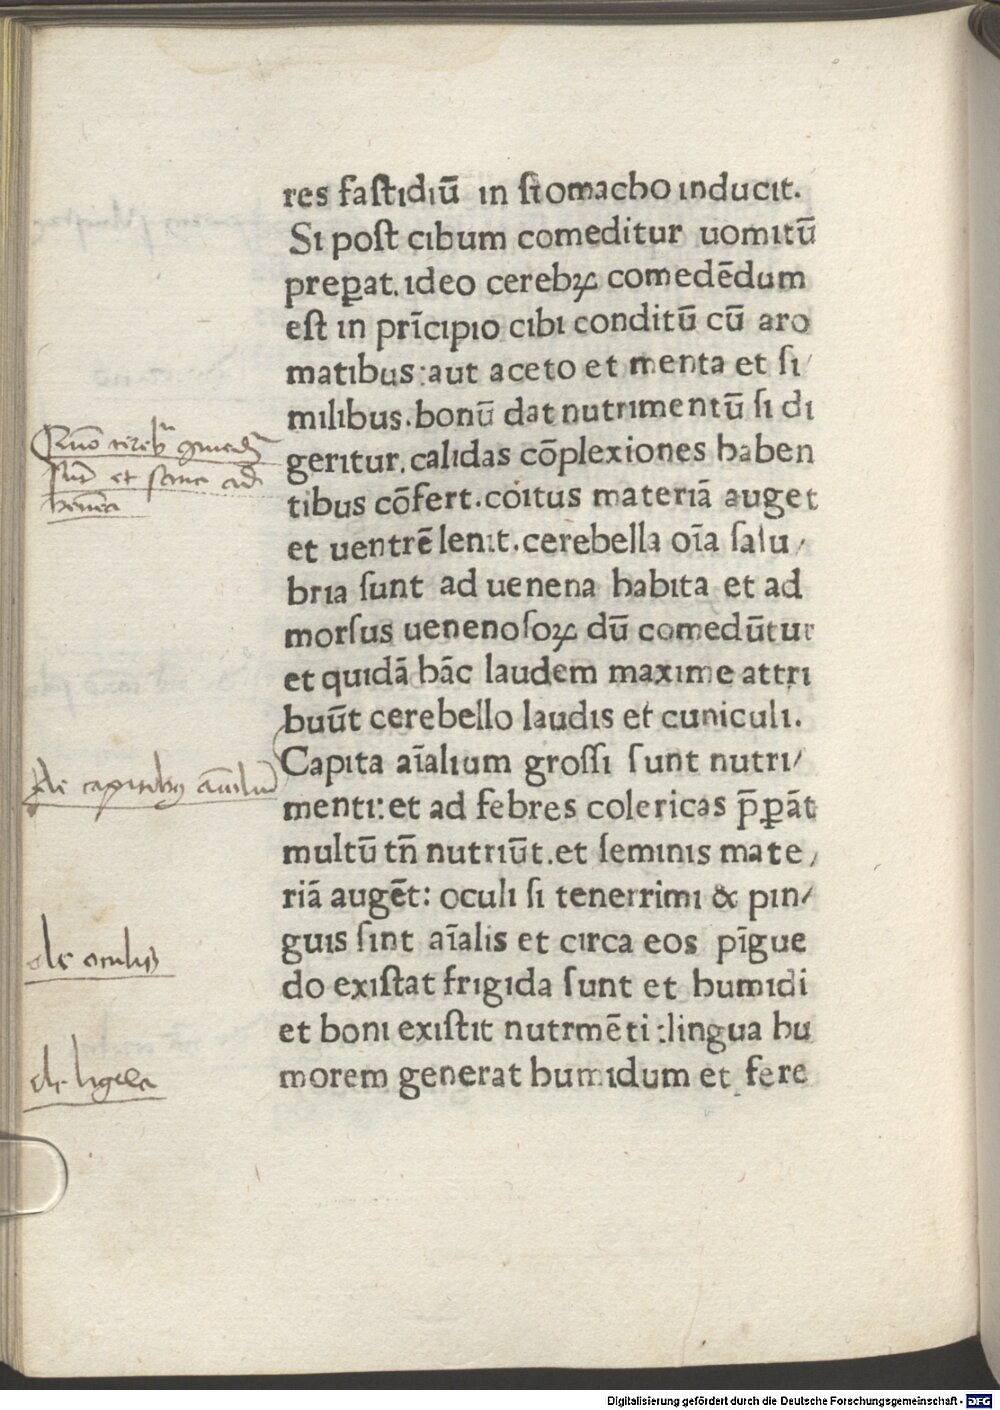 res faſtidiū in ſtomacho inducit.
Si poſt cibum comeditur uomitū
preꝑat. ideo cerebꝝ comedēdum
eſt in prīcipio cibi conditū cū aro
matibus: aut aceto et menta et ſi/
milibus. bonū dat nutrimentū ſi di
geritur. calidas cōplexiones haben
tibus cōfert. coitus materiā auget
et uentrē lenit. cerebella oīa ſalu/
bria ſunt ad uenena habita et ad
morſus uenenoſoꝝ dū comedūtur
et quidā hāc laudem maxime attri
buūt cerebello laudis et cuniculi.
Capita aīalium groſſi ſunt nutri/
menti: et ad febres colericas p̄ꝑāt
multū tn̄ nutriūt. et ſeminis mate/
riā augēt: oculi ſi tenerrimi & pin/
guis ſint aīalis et circa eos pīgue
do exiſtat frigida ſunt et humidi
et boni exiſtit nutrmēti: lingua hu
morem generat humidum et fere
et
ad
de capitibꝰ aīaliū
de oculis
de
Digitalisierung gefördert durch die Deutsche Forschungsgemeinschaft - DFG